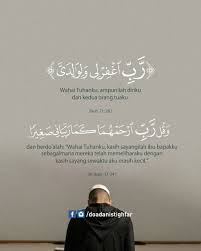 ﴿رَّبِّ ٱغْفِرْ لِى وَلِوَٰلِدَىَّ﴾
Wahai Tuhanku, ampunilah diriku
dan kedua orang tuaku
وَقُل رَّبِّ ٱرْحَمْهُمَا كَمَا رَبَّيَانِى صَغِيرًا
dan berdo'alah: "Wahai Tuhanku, kasih sayangilah ibu bapakku
sebagaimana mereka telah memeliharaku dengan
kasih sayang sewaktu aku masih kecil."
/@doadanistighfar